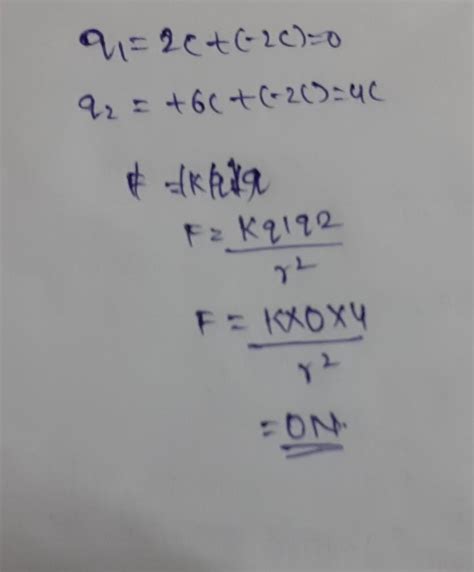 q₁ = 2C + (-2C) = 0
q₂ = +6C + (-2C) = 4C
F = Kq1q2
r²
F = K×0×4
r²
= 0N.